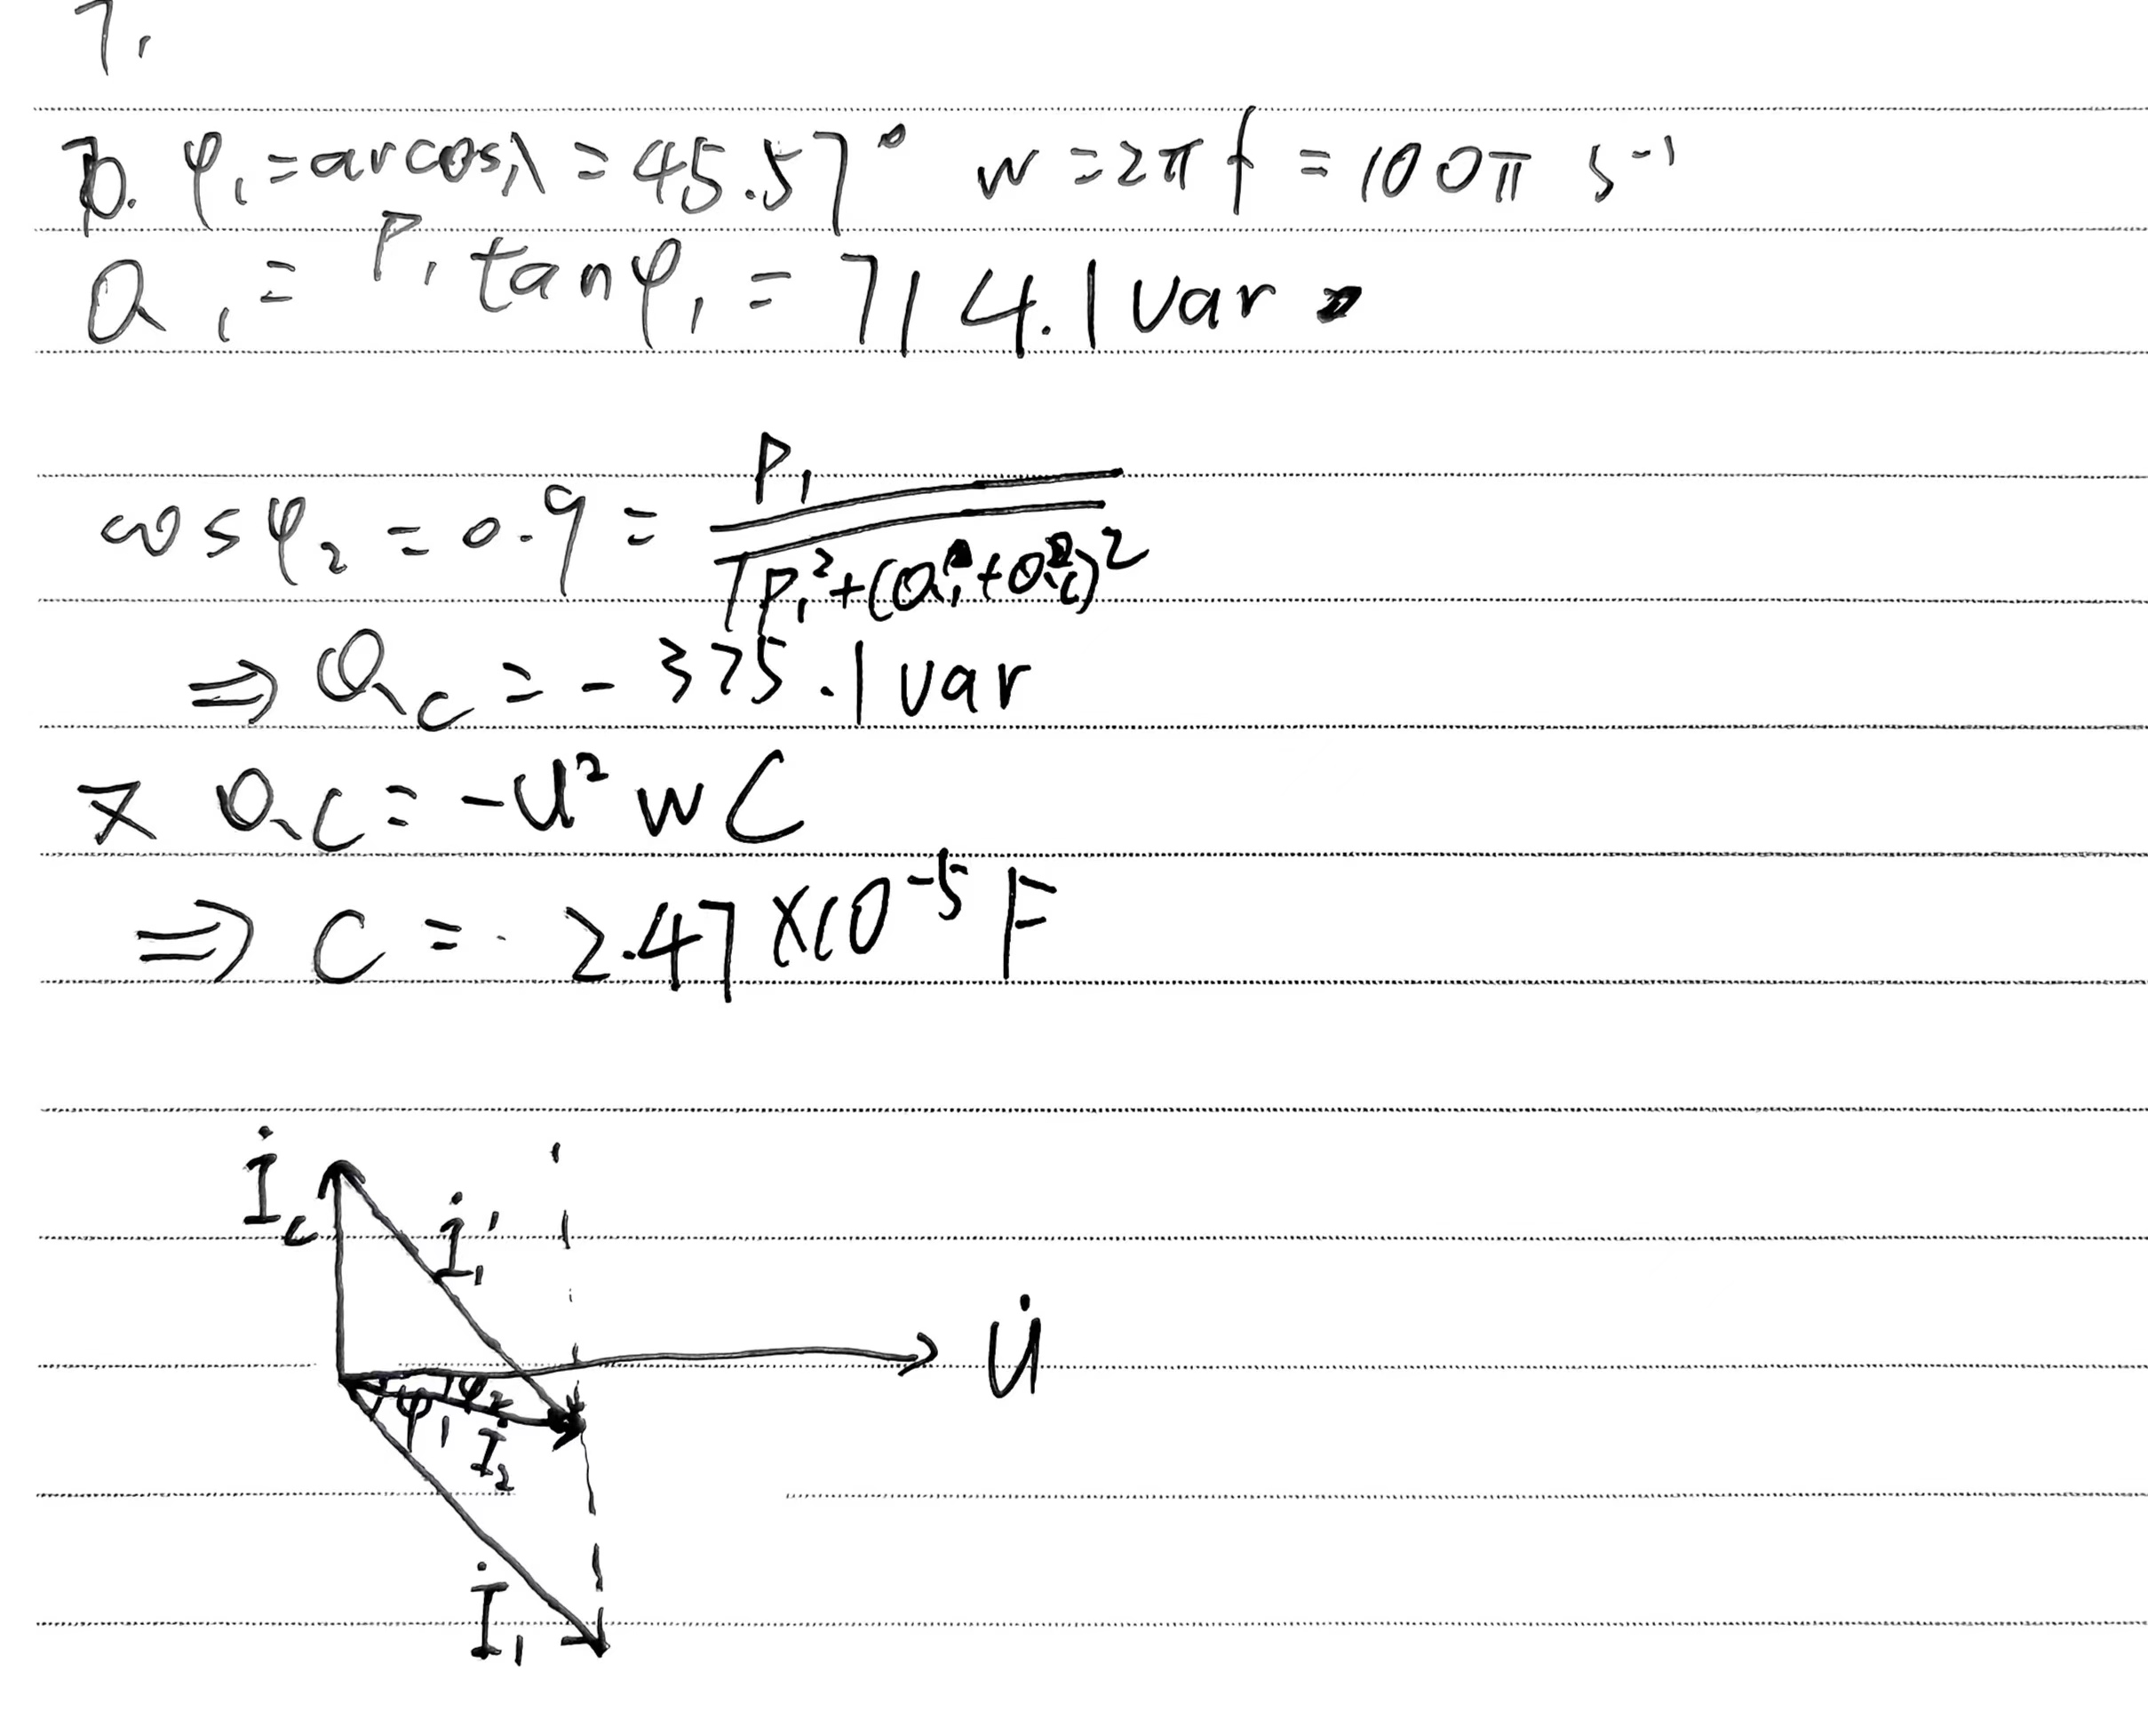 7.
φ₁ = arcosλ = 45.57° w = 2πf = 100π s⁻¹
Q₁ = P₁ tanφ₁ = 714.1 var
cosφ₂ = 0.9 = P₁ / √(P₁² + (Q₁ + Q_C)²)
⇒ Q_C = -375.1 var
又 Q_C = -U² w C
⇒ C = 2.47 × 10⁻⁵ F
İ_C
İ₁'
U̇
φ₂
φ₁
İ₂
İ₁